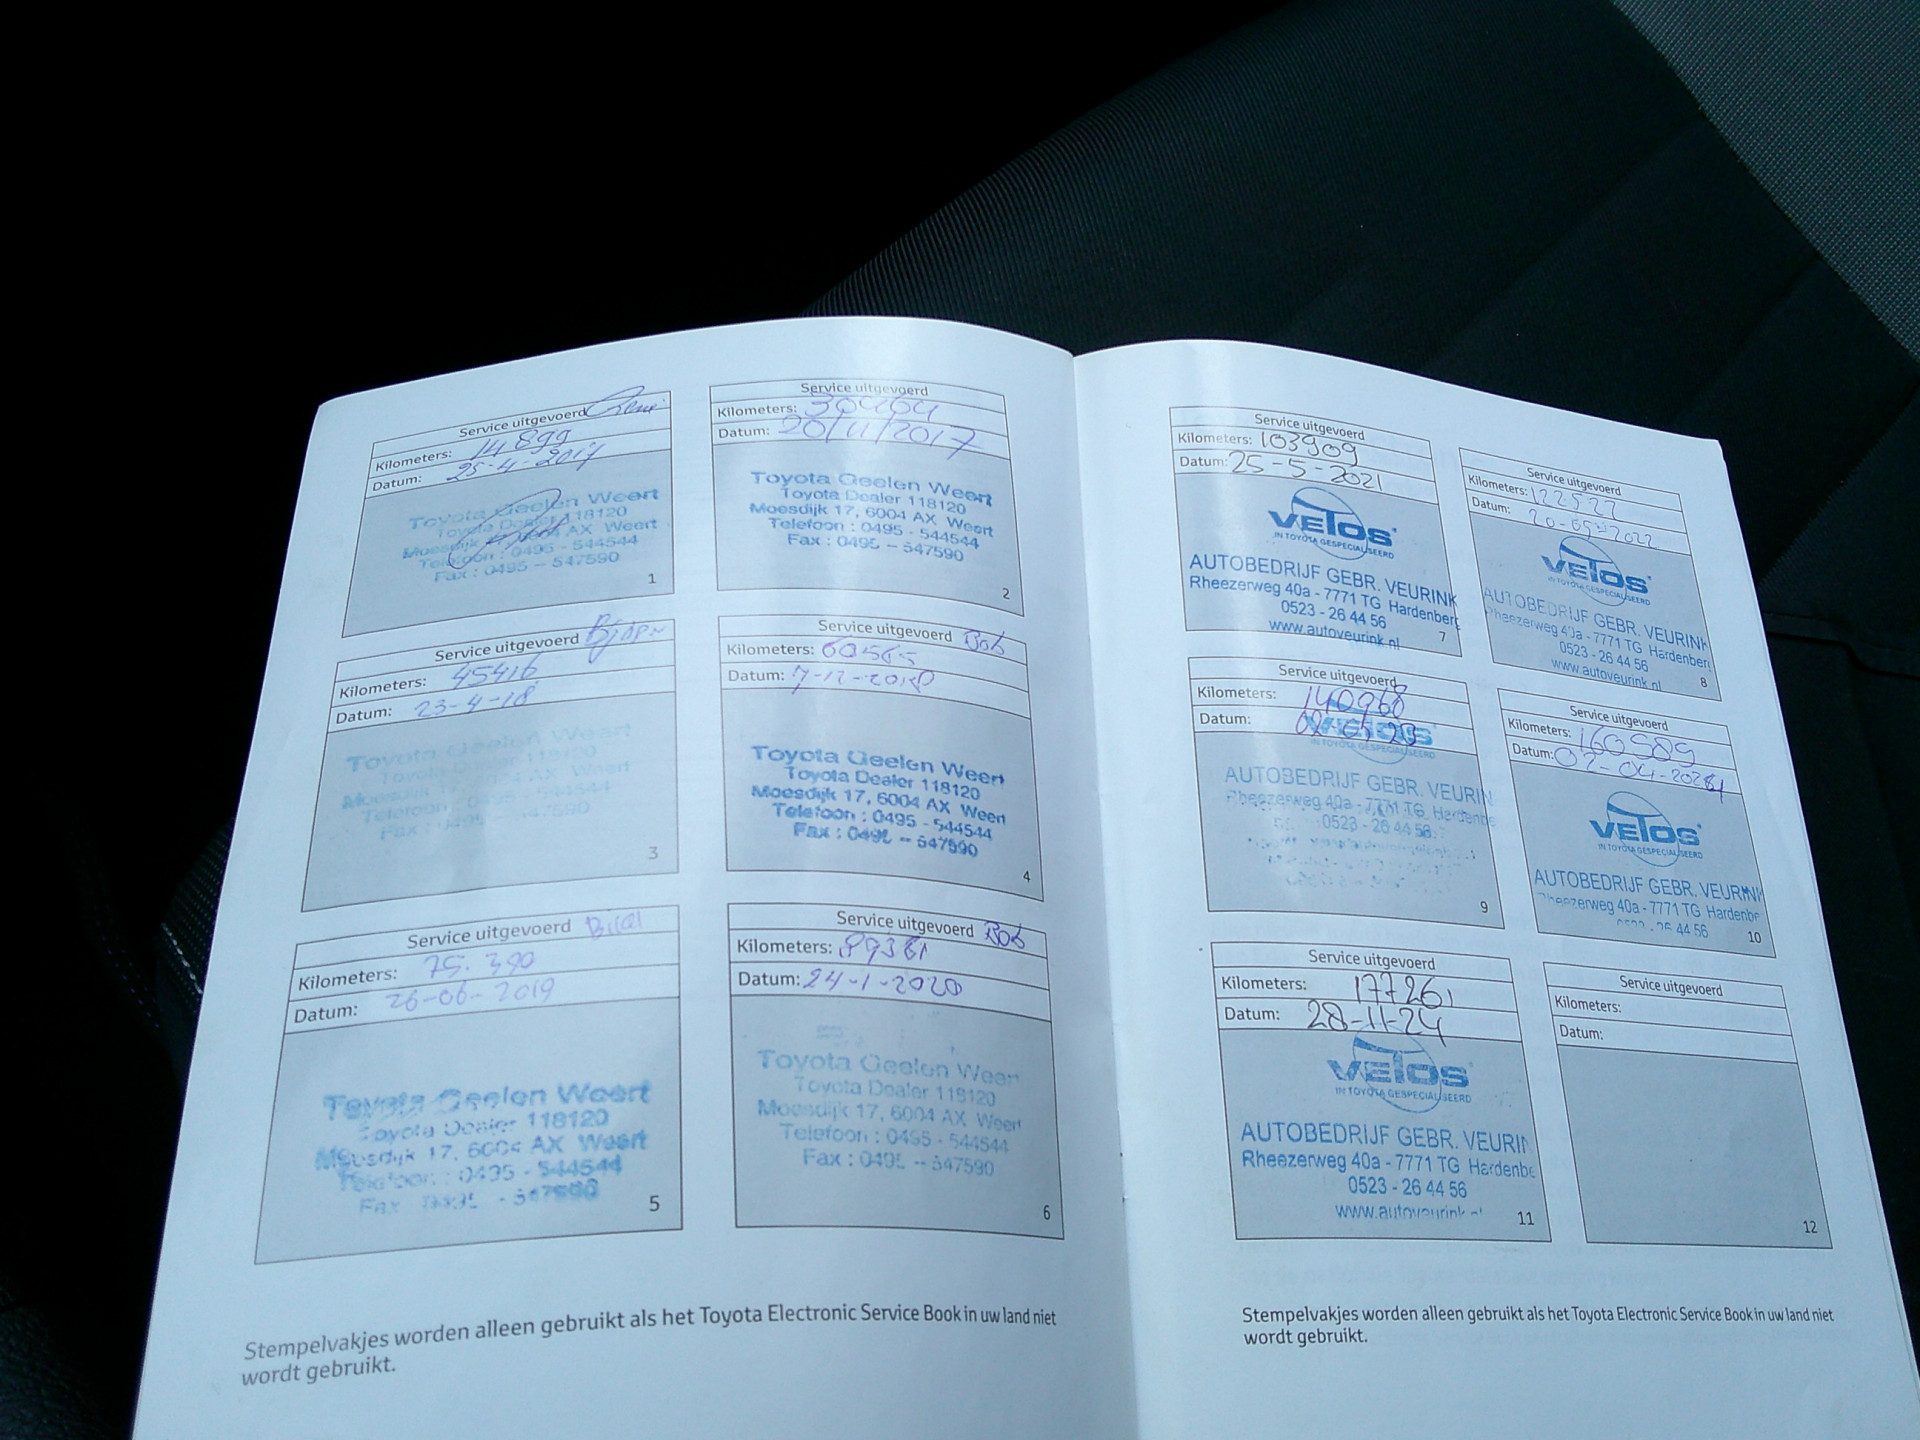 Service uitgevoerd
Kilometers: 14 899
Datum: 25-4-2017
Toyota Geelen Weert
Toyota Dealer 118120
Moesdijk AX Weert
Telefoon : 0495 - 544544
Fax : 0495 - 547590
1
Service uitgevoerd
Kilometers: 30464
Datum: 20/11/2017
Toyota Geelen Weert
Toyota Dealer 118120
Moesdijk 17, 6004 AX Weert
Telefoon : 0495 - 544544
Fax : 0495 - 547590
2
Service uitgevoerd Bjorn
Kilometers: 45416
Datum: 23-4-18
Toyota Geelen Weert
Toyota Dealer 118120
Moesdijk 17, AX Weert
Telefoon : 0495 - 544544
Fax : 0495 - 547590
3
Service uitgevoerd Bob
Kilometers: 60565
Datum: 7-12-2018
Toyota Geelen Weert
Toyota Dealer 118120
Moesdijk 17, 6004 AX Weert
Telefoon : 0495 - 544544
Fax : 0495 - 547590
4
Service uitgevoerd
Kilometers: 75.390
Datum: 26-06-2019
Toyota Geelen Weert
Toyota Dealer 118120
Moesdijk 17, 6004 AX Weert
Telefoon : 0495 - 544544
Fax 0495 - 547590
5
Service uitgevoerd Bob
Kilometers: 89381
Datum: 24-1-2020
Toyota Geelen Weert
Toyota Dealer 118120
Moesdijk 17, 6004 AX Weert
Telefoon : 0495 - 544544
Fax : 0495 - 547590
6
Stempelvakjes worden alleen gebruikt als het Toyota Electronic Service Book in uw land niet
wordt gebruikt.
Service uitgevoerd
Kilometers: 103909
Datum: 25-5-2021
VETOS
IN TOYOTA GESPECIALISEERD
AUTOBEDRIJF GEBR. VEURINK
Rheezerweg 40a - 7771 TG Hardenberg
0523 - 26 44 56
www.autoveurink.nl
7
Service uitgevoerd
Kilometers: 122522
Datum: 20-05-2022
VETOS
IN TOYOTA GESPECIALISEERD
AUTOBEDRIJF GEBR. VEURINK
Rheezerweg 40a - 7771 TG Hardenber
0523 - 26 44 56
www.autoveurink.nl
8
Service uitgevoerd
Kilometers: 140968
Datum:
VETOS
IN TOYOTA GESPECIALISEERD
AUTOBEDRIJF GEBR. VEURIN
Rheezerweg 40a - 7771 TG Hardenbe
0523 - 26 44 56
9
Service uitgevoerd
Kilometers: 160589
Datum: 02-04-2024
VETOS
IN TOYOTA GESPECIALISEERD
AUTOBEDRIJF GEBR. VEURINK
Rheezerweg 40a - 7771 TG Hardenbe
0523 - 26 44 56
10
Service uitgevoerd
Kilometers: 177261
Datum: 28-11-24
VETOS
IN TOYOTA GESPECIALISEERD
AUTOBEDRIJF GEBR. VEURIN
Rheezerweg 40a - 7771 TG Hardenbe
0523 - 26 44 56
www.autoveurink.nl
11
Service uitgevoerd
Kilometers:
Datum:
12
Stempelvakjes worden alleen gebruikt als het Toyota Electronic Service Book in uw land niet
wordt gebruikt.